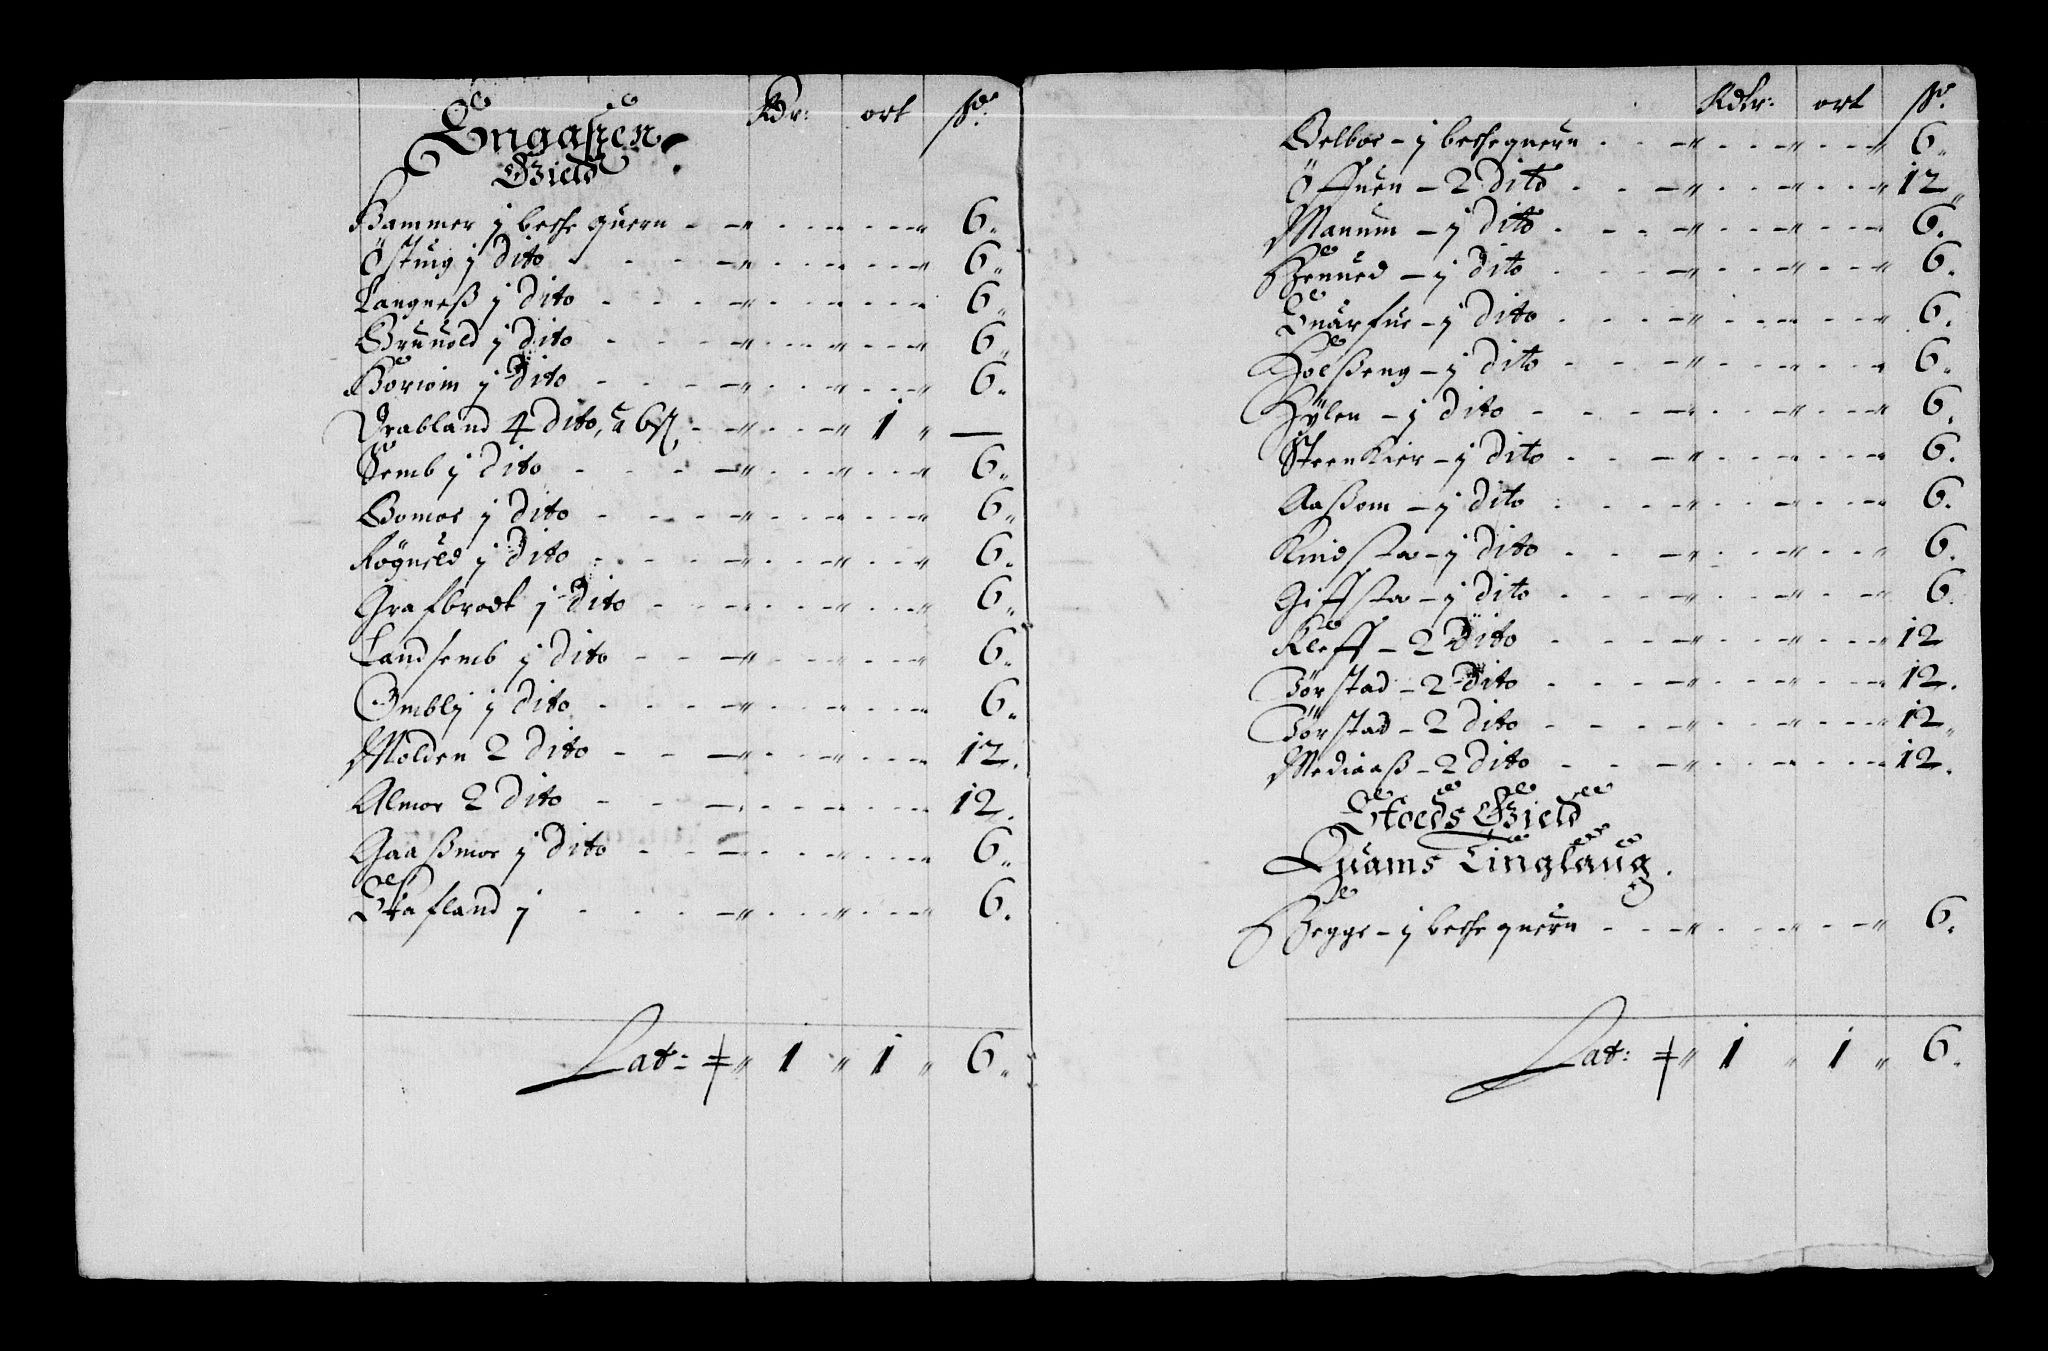 Rdr: ort ß:
Enganßen
Gield
Hammer j beche quern - - " - - " - - " 6.
Östuig j dito - - " - - " - - " 6.
Langneß j dito - - " - - " - - " 6.
Gruuold j dito - - " - - " - - " 6.
Horiom j dito - - " - - " - - " 6.
Vrabland 4 dito, a 6ß - " - - " 1 " —
Semb j dito - - " - - " - - " 6.
Bomoe j dito - - " - - " - - " 6.
Rögneld j dito - - " - - " - - " 6.
Grafbrodt j dito - - " - - " - - " 6.
Landsemb j dito - - " - - " - - " 6.
Omblj j dito - - " - - " - - " 6.
Molden 2 dito - - " - - " - - " 12.
Almoe 2 dito - - " - - " - - " 12.
Gaaßmoe j dito - - " - - " - - " 6.
Skafland j - - " - - " - - " 6.
Lat: ≠ " 1 " 1 " 6.
Rdlr: ort ß:
Belboe - j beche quern - - " - - " - - " 6.
Öffuen - 2 dito - - " - - " - - " 12
Manum - j dito - - " - - " - - " 6.
Henued - j dito - - " - - " - - " 6.
Suarfue - j dito - - " - - " - - " 6.
Holßeng - j dito - - " - - " - - " 6.
Hylen - j dito - - " - - " - - " 6.
Steenkier - j dito - - " - - " - - " 6.
Aaßom - j dito - - " - - " - - " 6.
Quidsta - j dito - - " - - " - - " 6.
Giffsta - j dito - - " - - " - - " 6.
Kleff - 2 dito - - " - - " - - " 12
Förstad - 2 dito - - " - - " - - " 12.
Förstad - 2 dito - - " - - " - - " 12
Mediaaß - 2 dito - - " - - " - - " 12.
Stoeds Gield
Quams Tinglaug.
Hegge - j beche quern - - " - - " - - " 6.
Lat: ≠ " 1 " 1 " 6.